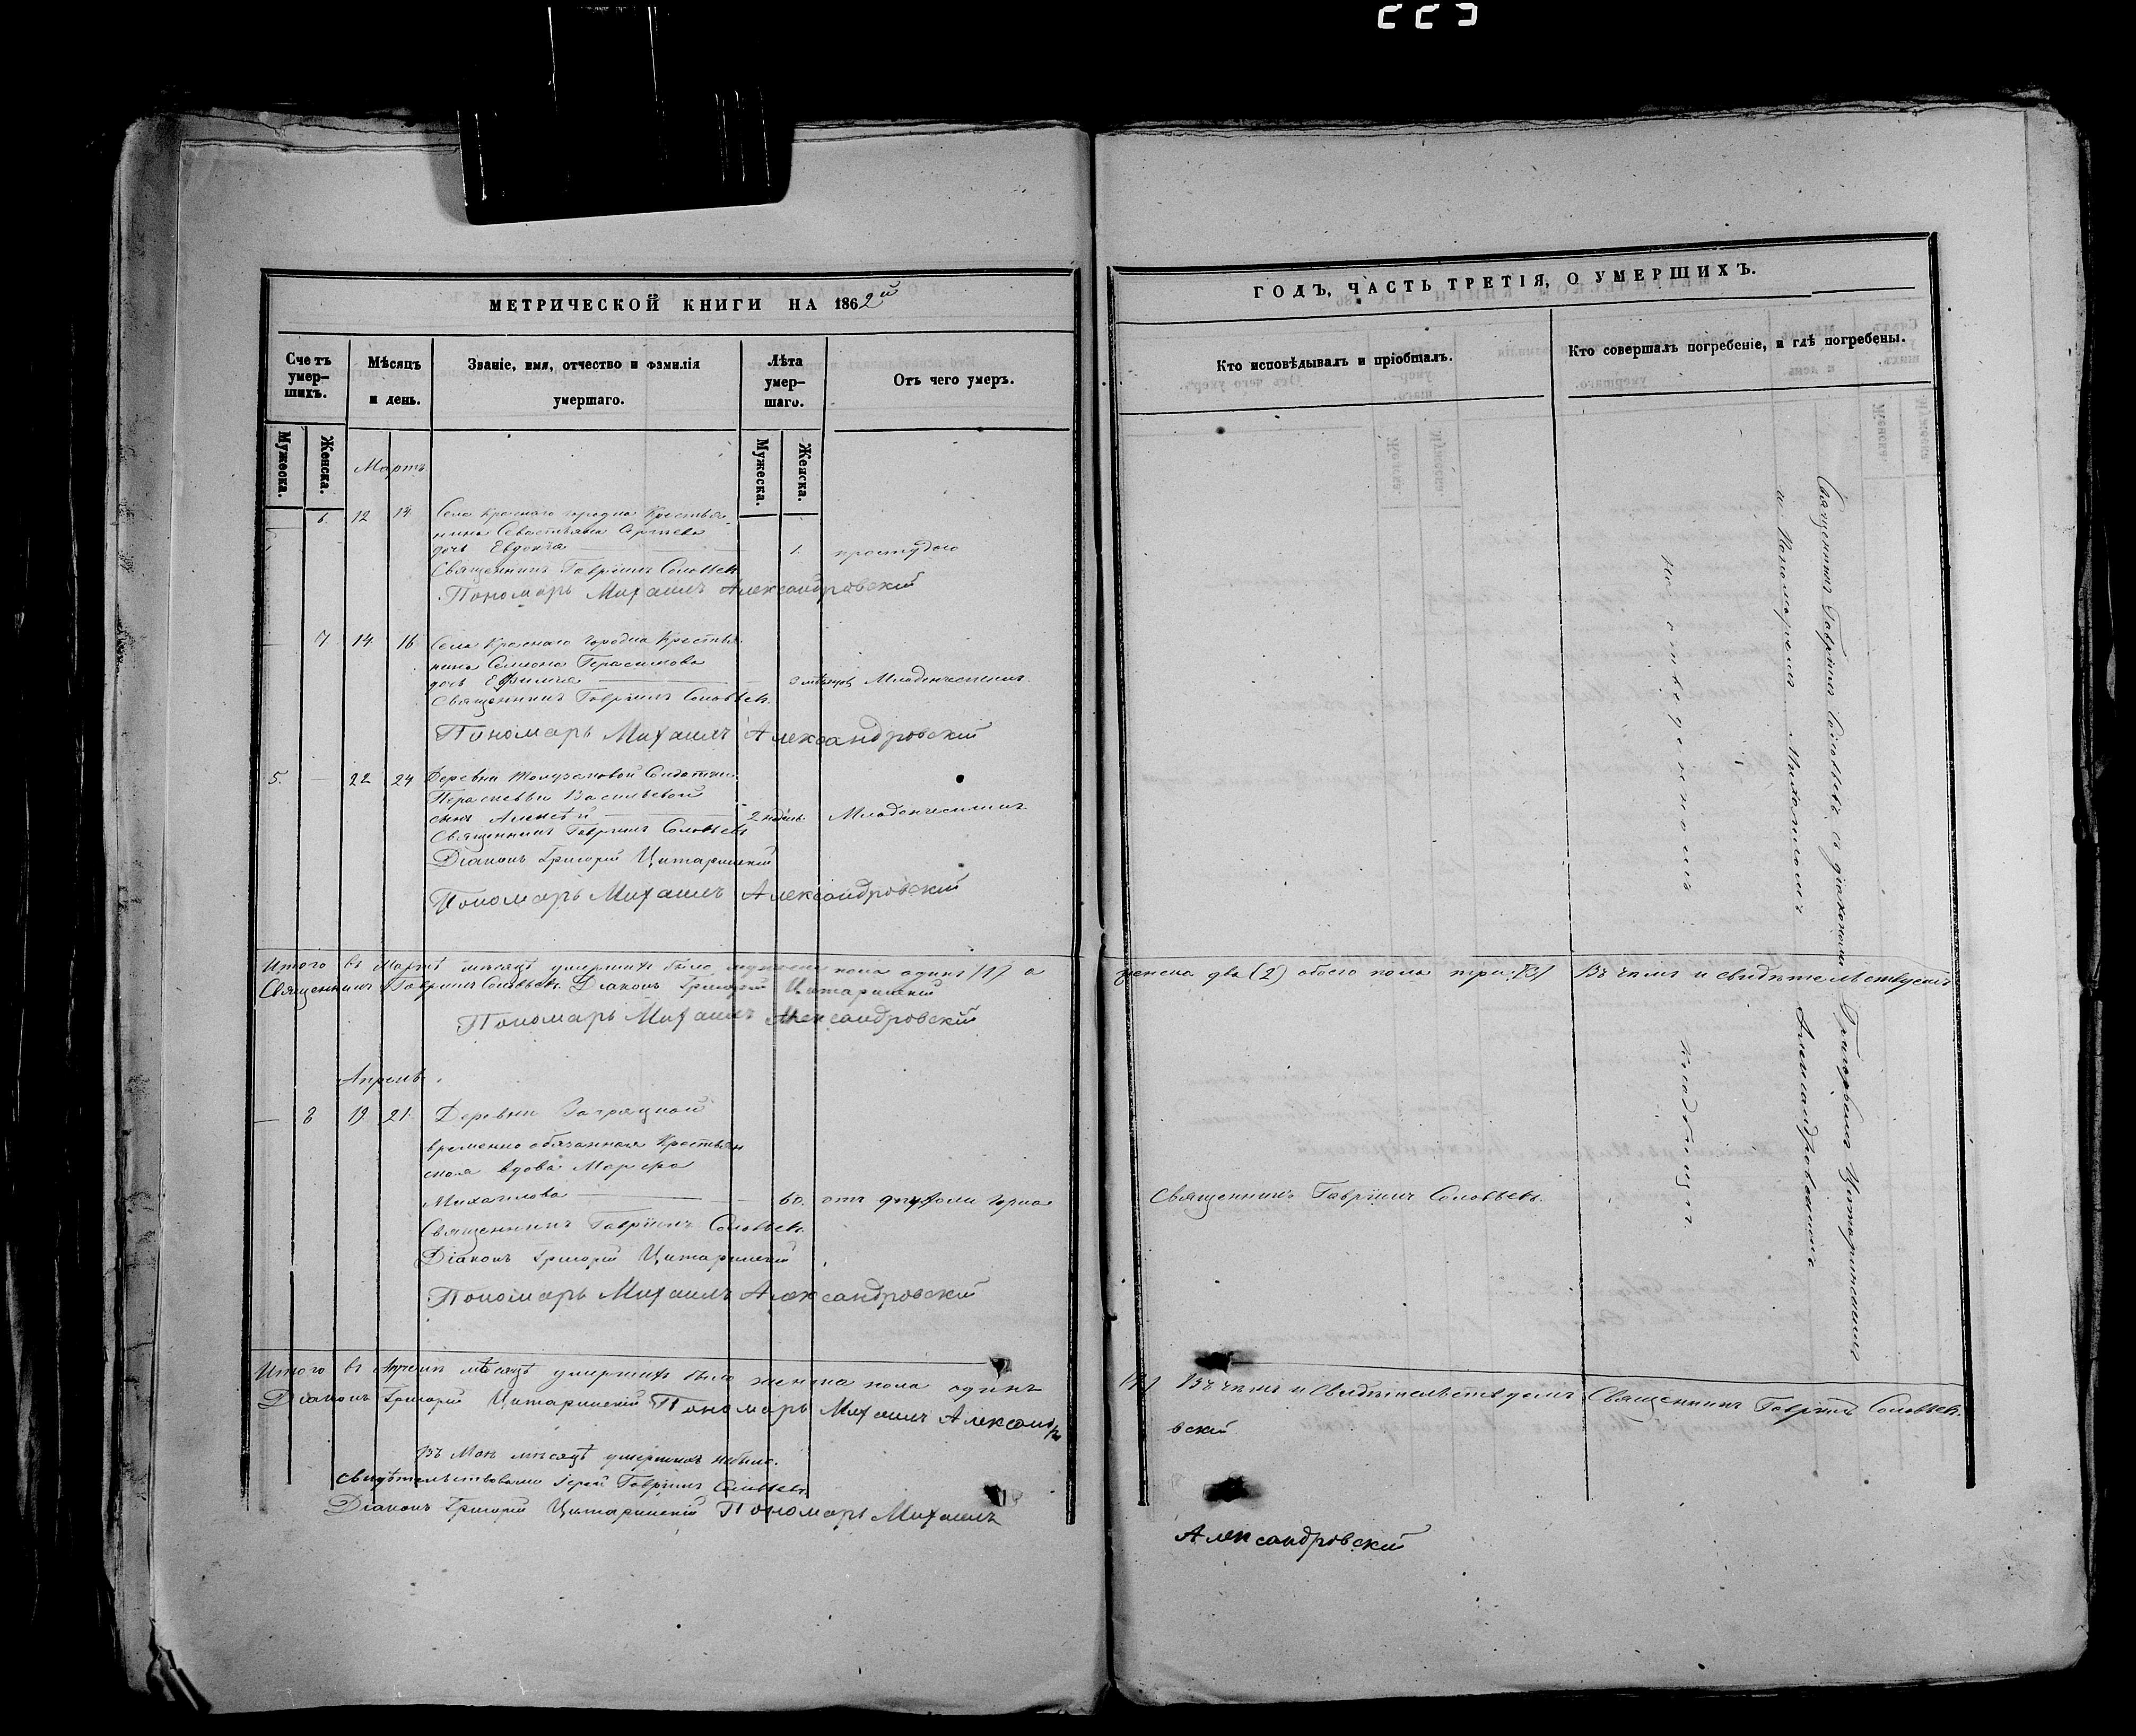 МЕТРИЧЕСКОЙ КНИГИ НА 1862й
Счетъ умер-шихъ.
Мѣсяцъ и день.
Званіе, имя, отчество и фамилія умершаго.
Лѣта умер-шаго.
Отъ чего умеръ.
Мужеска.
Женска.
Мужеска.
Женска.
Мартъ
6 12 14 Села Краснаго городка Крестья-
нина Севостьяна Сергѣева
дочь Евдокія 1. простудою
Священникъ Гавріилъ Соловьевъ
Пономарь Михаилъ Александровскій
7 14 16 Села Краснаго городка Крестья-
нина Семіона Герасимова
дочь Ефимія 3 мѣсяцовъ Младенческимъ
Священникъ Гавріилъ Соловьевъ.
Пономарь Михаилъ Александровскій
5. 22 24 Деревни Солдатки
Парасковьи Васильевой
сынъ Алексѣй 2 недѣль Младенческимъ
Священникъ Гавріилъ Соловьевъ
Діаконъ Григорій Цитаринскій
Пономарь Михаилъ Александровскій
Итого въ Мартѣ мѣсяцѣ умершихъ было мужеска пола одинъ (1) а
Священникъ Гавріилъ Соловьевъ. Діаконъ Григорій Цитаринскій
Пономарь Михаилъ Александровскій
Апрель
8 19 21 Деревни
временно обязанная Крестьян
ская вдова Марѳа
Михайлова 60. отъ горла
Священникъ Гавріилъ Соловьевъ.
Діаконъ Григорій Цитаринскій
Пономарь Михаилъ Александровскій
Итого въ Апрелѣ мѣсяцѣ умершихъ было женска пола одинъ
Діаконъ Григорій Цитаринскій Пономарь Михаилъ Александр
Въ Маѣ мѣсяцѣ умершихъ небыло.
Свидѣтельствовали Іерей Гавріилъ Соловьевъ
Діаконъ Григорій Цитаринскій Пономарь Михаилъ
ГОДЪ, ЧАСТЬ ТРЕТІЯ, О УМЕРШИХЪ.
Кто исповѣдывалъ и пріобщалъ.
Кто совершалъ погребеніе, и гдѣ погребены.
На отведенномъ кладбищѣ
Священникъ Гавріилъ Соловьевъ съ діакономъ Григорьемъ Цитаринскимъ
и Пономаремъ Михаиломъ Александровскимъ
женска два (2) обоего пола три (3) Въ чемъ и свидѣтельствуемъ
Священникъ Гавріилъ Соловьевъ.
(1) Въ чемъ и свидѣтельствуемъ Священникъ Гавріилъ Соловьевъ.
вскій
Александровскій